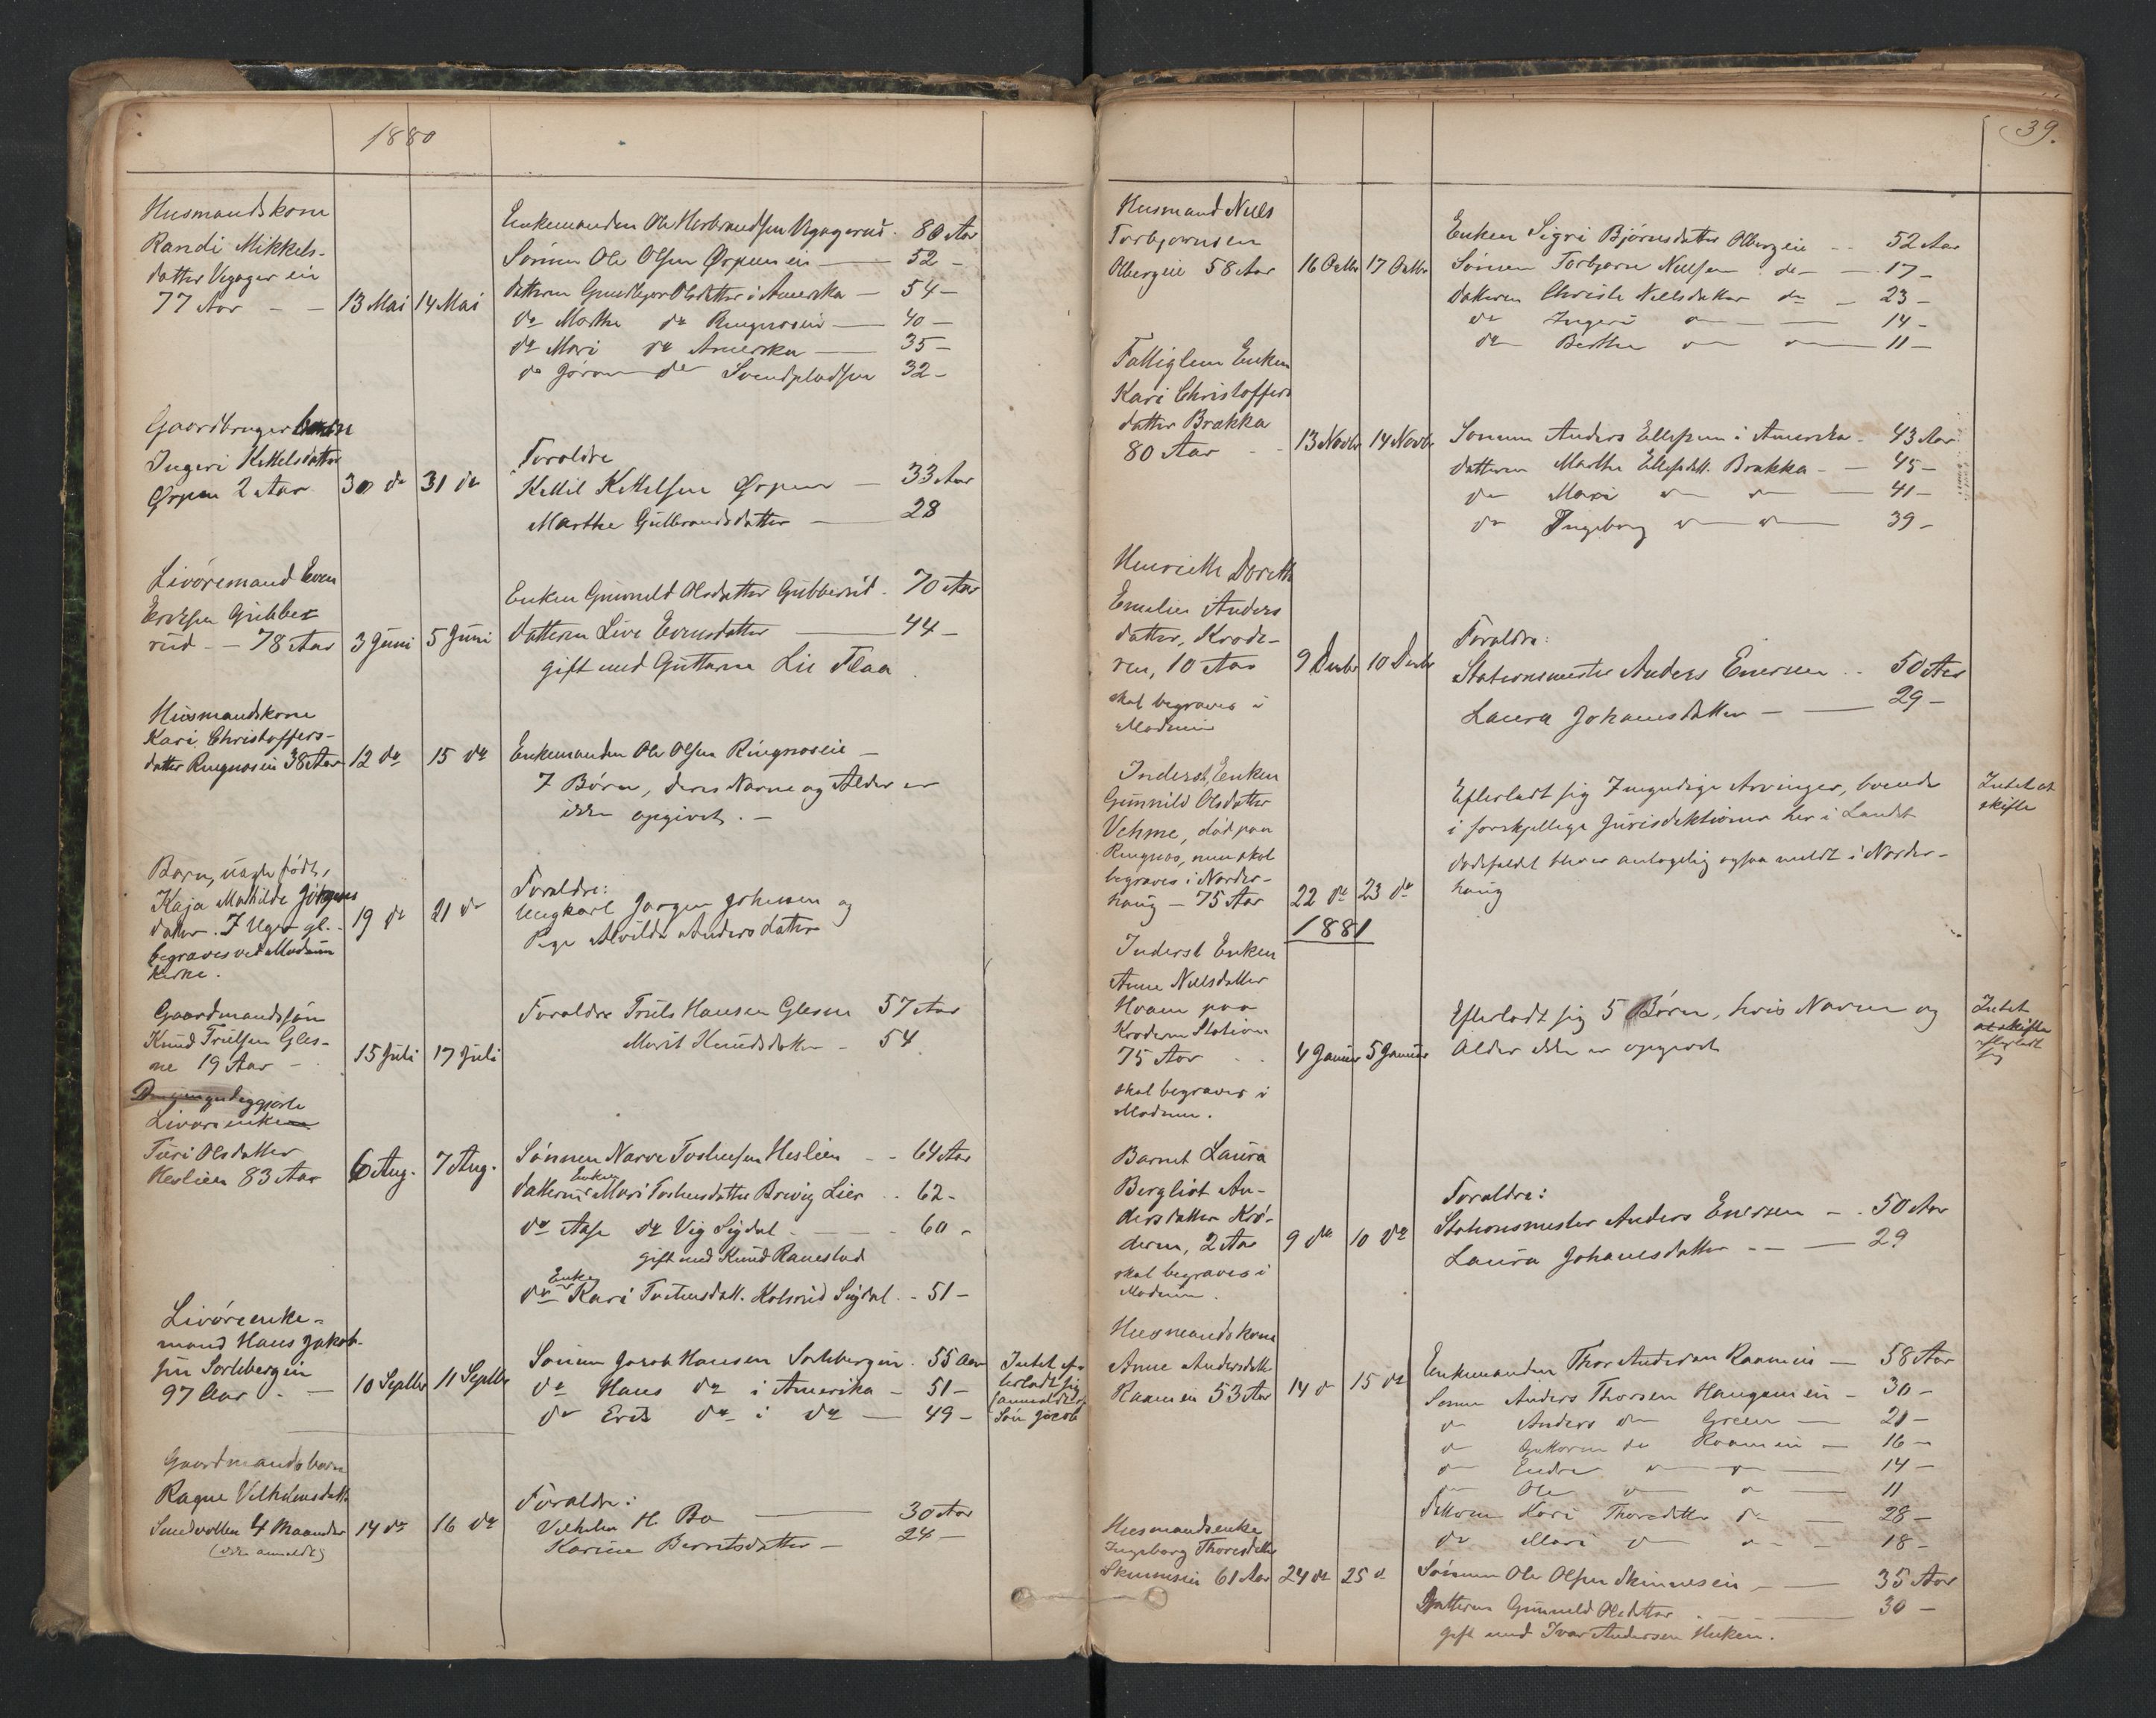 1880
Husmandskone
Randi Mikkels-
datter Vegager eie
77 Aar - - 13 Mai 14 Mai
Enkemanden Ole Herbrandsen Vegagereie. 80 Aar
Sønnen Ole Olsen Ørpeneie — 52 -
datteren Gundbjør Olsdatter i Amerika — 54 -
do Marthe do Ringnæseie — 40 -
do Mari do Amerika — 35 -
do Jøran do Svendpladsen 32 -
Gaardbruger
Ingeri Kittelsdatter
Ørpen 2 Aar 30 do 31 do
Forældre
Kittil Kittelsen Ørpen — 33 Aar
Marthe Gulbrandsdatter — 28
Livøremand Even
Gubbe-
rud - - 78 Aar 3 Juni 5 Juni
Enken Gunnild Olsdatter Gubberud. 70 Aar
datteren Live Evensdatter — 44 -
gift med Guttorm Lie Flaa
Husmandskone
Kari Christoffers-
datter Ringnæseie 38 Aar 12 do 15 do
Enkemanden Ole Olsen Ringnæseie —
7 Børn, deres Navne og Alder er
ikke opgivet. —
Barn, uægte født,
Kaja Mathilde Jörgens
datter. 7 Uger gl. - 19 do 21 do
begraves ved Modum
Kirke.
Forældre:
Ungkarl Jørgen Johnsen og
Pige Alvilde Andersdatter
Gaardmandssøn
Knud Trulsen Gles-
ne 19 Aar - 15 Juli 17 Juli
Forældre Truls Hansen Glesne 57 Aar
Marit Knudsdatter - 54
Livøreenke
Turi Olsdatter
Heslien 83 Aar 6 Aug. 7 Aug.
Sønnen Narve Tostensen Heslien - - 64 Aar
Enken
datteren Mari Tostensdatter Lier .. 62 -
do Aase do Vig Sigdal - — - 60 -
gift med Knud Ramstad
Enke
do Kari Tostensdatt. Kolsrud Sigdal. - 51 -
Livøreenke-
mand Hans Jakob-
sen Sorlebergeie
97 Aar - — 10 Septbr 11 Septbr
Sønnen Jacob Hansen Sorlebergeie. 55 Aar
do Hans do i Amerika - 51 -
do Erik do i do — 49 -
Intet ef-
terladt sig
(anmeldt af
Søn Jacob
Gaardmandsbarn
Ragne Vilhelmsdatt
4 Maaneder 14 do 16 do
(ikke anmeldt)
Forældre:
Vilhelm H. Bø — 30 Aar
Karine Berntsdatter — 24 —
39.
Husmand Nils
Torbjørnsen
Olbergeie 58 Aar 16 Octbr 17 Octbr
Enken Sigri Bjørnsdatter Olbergeie - - 52 Aar
Sønnen Torbjørn Nilsen do — 17 -
datteren Christi Nilsdatter do — 23 -
do Ingeri — 14 -
do Berthe — 11 -
Fattiglem Enken
Kari Christoffers
datter Brækka
80 Aar - - 13 Novbr 14 Novbr
Sønnen Anders Ellefsen i Amerika - 43 Aar
datteren Marthe Ellefsdatt. Brækka - — 45 -
do Mari — 41 -
do Ingeborg — 39 -
Henriette Dorthe
Emelie Anders
datter, Krøde-
ren, 10 Aar 9 Decbr 10 Decbr
skal begraves i
Modum
Forældre:
Stationsmester Anders Enersen .. 50 Aar
Laura Johannesdatter - — 29 -
Inderst, Enken
Gunnild Olsdatter
Vehme, død paa
Ringnæs, men skal
begraves i Norder-
houg — 75 Aar 22 do 23 do
Efterladt sig 7 myndige Arvinger, boende
i forskjellige Jurisdiktioner her i Landet
dødsfaldet bliver antagelig ogsaa meldt i Norder-
houg
Intet at
skifte
1881
Inderst Enken
Anne Nilsdatter
Hvam paa
Krøderen Station
75 Aar - - 4 Januar 5 Januar
skal begraves i
Modum.
Efterladt sig 5 Børn, hvis Navne og
Alder ikke er opgivet
Intet
at skifte
efterladt
sig
Barnet Laura
Bergliot An-
dersdatter Krø-
deren, 2 Aar 9 do 10 do
skal begraves i
Modum.
Forældre:
Stationsmester Anders Enersen - . 50 Aar
Laura Johannesdatter - — 29
Husmandskone
Anne Andersdatter
Raameneie 53 Aar 14 do 15 do
Enkemanden Thor Andersen Raameneie — 58 Aar
Sønnen Anders Thorsen Haugeneie - 30 -
do Anders do Green — 21 -
do Guttorm do Raameneie — 16 -
do Endre — 14 -
do Ole — 11
datteren Kari Thorsdatter do — 28 -
do Mari do — 18 -
Husmandsenke
Ingeborg Thoresdatter
Skinneseie 61 Aar 24 do 25 do
Sønnen Ole Olsen Skinneseie - — 35 Aar
Datteren Gunnild Olsdatter - — 30 -
gift med Ivar Andersen Huken.